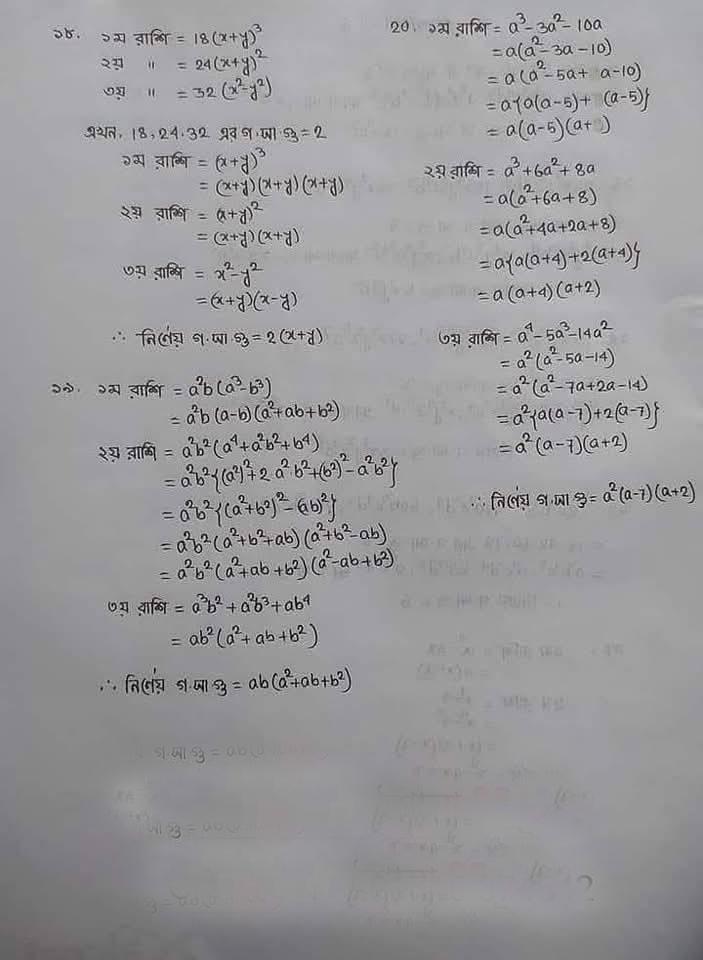 ১৮. ১ম রাশি = 18(x+y)³
২য় " = 24(x+y)²
৩য় " = 32(x²-y²)
এখন, 18, 24, 32 এর গ.সা.গু = 2
১ম রাশি = (x+y)³
= (x+y)(x+y)(x+y)
২য় রাশি = (x+y)²
= (x+y)(x+y)
৩য় রাশি = x²-y²
= (x+y)(x-y)
∴ নির্ণেয় গ.সা.গু = 2(x+y)
১৯. ১ম রাশি = a²b(a³-b³)
= a²b(a-b)(a²+ab+b²)
২য় রাশি = a²b²(a⁴+a²b²+b⁴)
= a²b²{(a²)²+2a²b²+(b²)²-a²b²}
= a²b²{(a²+b²)²-(ab)²}
= a²b²(a²+b²+ab)(a²+b²-ab)
= a²b²(a²+ab+b²)(a²-ab+b²)
৩য় রাশি = a³b²+a²b³+ab⁴
= ab²(a²+ab+b²)
∴ নির্ণেয় গ.সা.গু = ab(a²+ab+b²)
২০. ১ম রাশি = a³-3a²-10a
= a(a²-3a-10)
= a(a²-5a+ a-10)
= a{a(a-5)+ (a-5)}
= a(a-5)(a+ )
২য় রাশি = a³+6a²+8a
= a(a²+6a+8)
= a(a²+4a+2a+8)
= a{a(a+4)+2(a+4)}
= a(a+4)(a+2)
৩য় রাশি = a⁴-5a³-14a²
= a²(a²-5a-14)
= a²(a²-7a+2a-14)
= a²{a(a-7)+2(a-7)}
= a²(a-7)(a+2)
∴ নির্ণেয় গ.সা.গু = a²(a-7)(a+2)